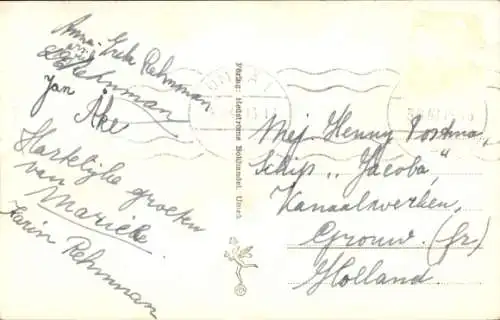 Anna-Greta Rehnman
Rehnman
Jan Åke
Hartelijke groeten
van
Marieke
Karin Rehnman
Förlag: Hedströms Bokhandel, Umeå
UMEÅ 1
Mej. Henny Postma,
Schip „Jacoba”,
Kanaalwerken,
Grouw. (Fr.)
Holland.